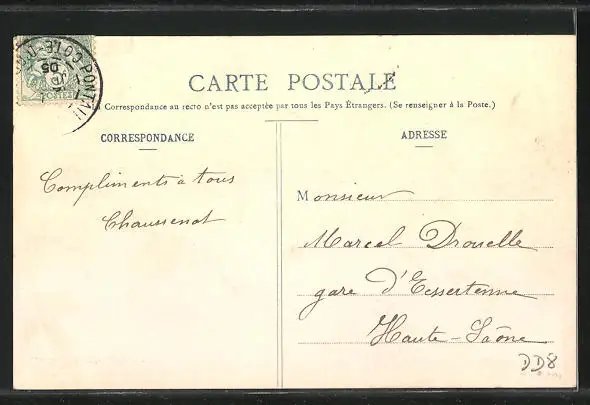 CARTE POSTALE
Correspondance au recto n'est pas acceptée par tous les Pays Étrangers. (Se renseigner à la Poste.)
CORRESPONDANCE
Compliments à tous
Chaussenot
ADRESSE
Monsieur
Marcel Drouelle
gare d'Essertenne
Haute-Saône
DD8
PONTAIL
CÔTE-D'OR
05
POSTES